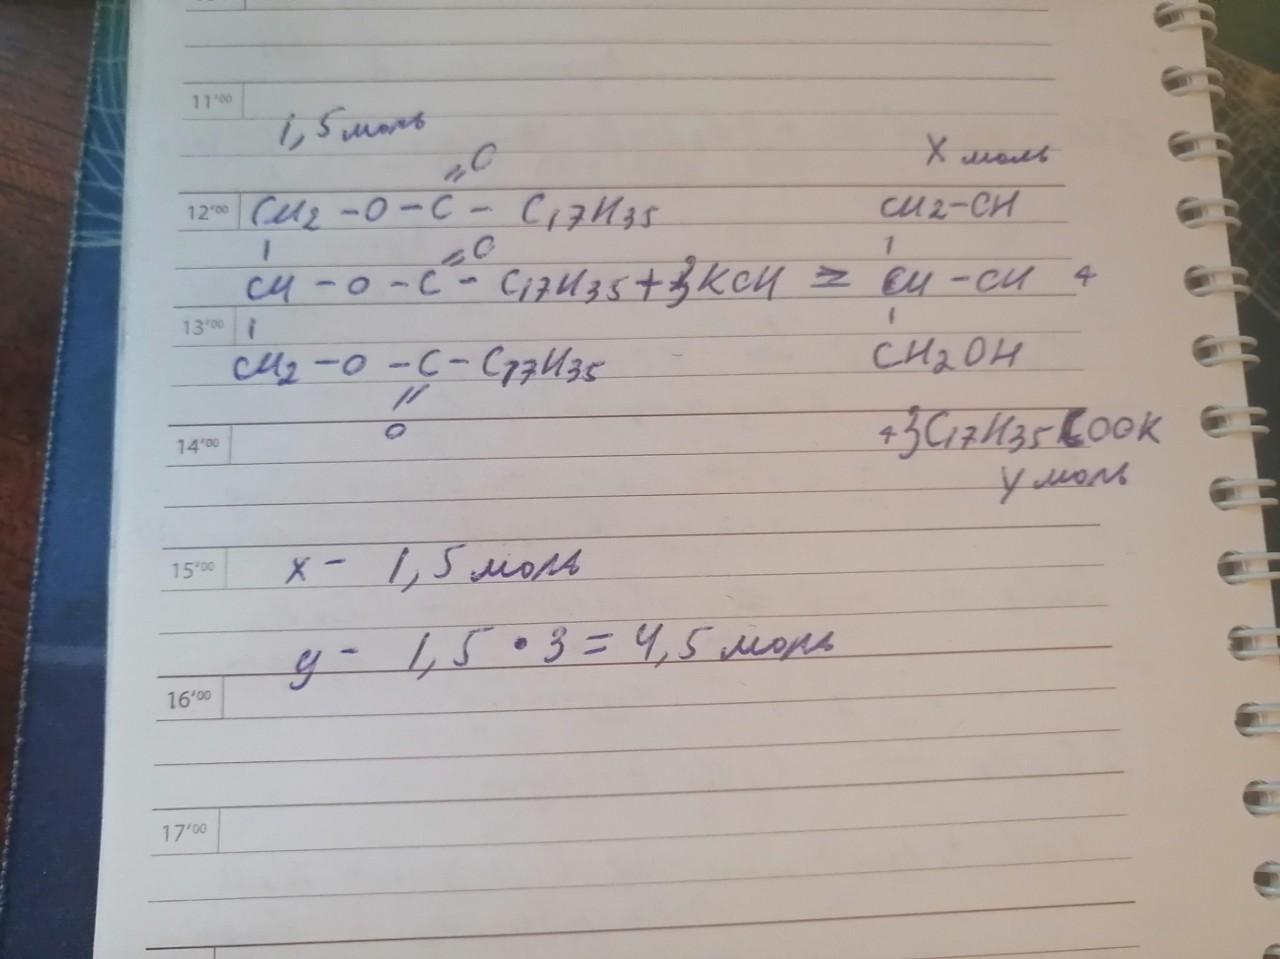 11'00
1,5 моль
X моль
O
12'00 CH2 - O - C - C17H35 CH2-CH
O
CH - O - C - C17H35 + 3KCH = CH - CH +
13'00
CH2 - O - C - C17H35 CH2OH
O
14'00 +3C17H35COOK
У моль
15'00 x - 1,5 моль
y - 1,5 · 3 = 4,5 моль
16'00
17'00